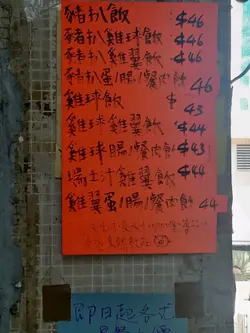 豬扒飯 $46
豬扒雞球飯 $46
豬扒雞翼飯 $46
豬扒蛋/腸/餐肉飯 46
雞球飯 $43
雞球雞翼飯 $44
雞球腸/餐肉飯 $43
瑞士汁雞翼飯 $44
雞翼蛋/腸/餐肉飯 44
即日起各式